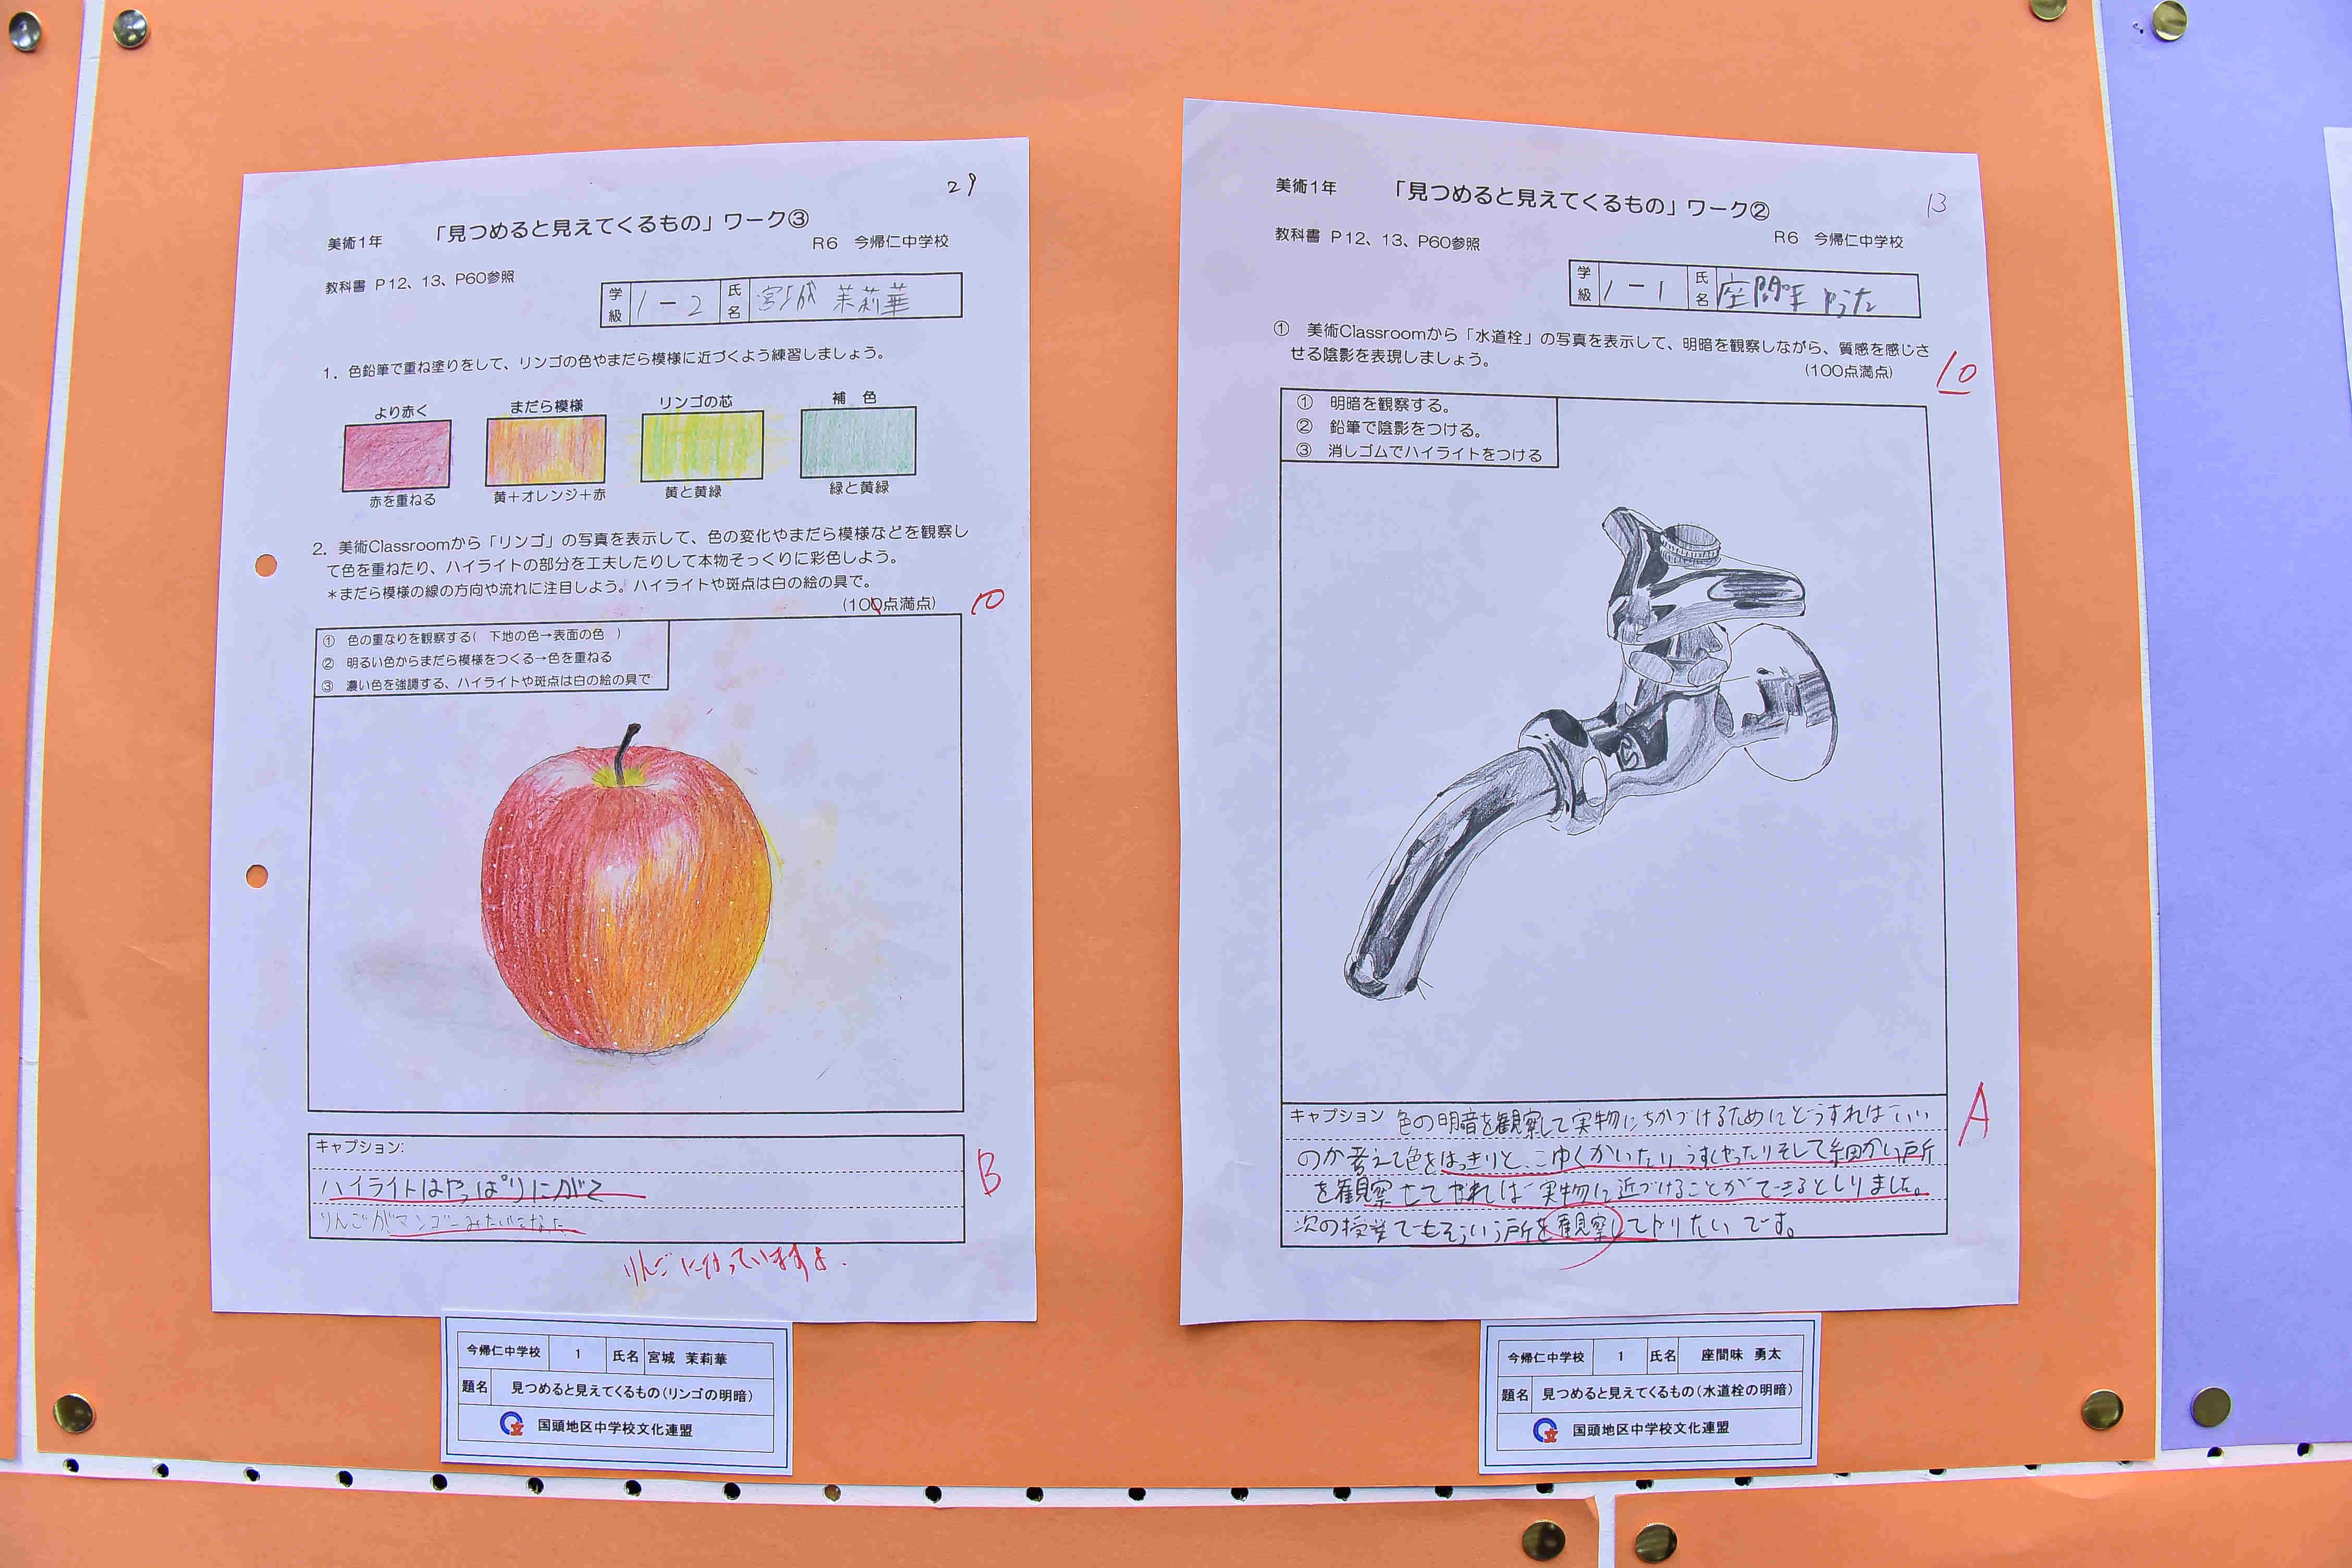 29
美術1年 「見つめると見えてくるもの」ワーク③
R6 今帰仁中学校
教科書 P12、13、P60参照
学級 1-2 氏名 宮城 茉莉華
1. 色鉛筆で重ね塗りをして、リンゴの色やまだら模様に近づくよう練習しましょう。
より赤く まだら模様 リンゴの芯 補 色
赤を重ねる 黄+オレンジ+赤 黄と黄緑 緑と黄緑
2. 美術Classroomから「リンゴ」の写真を表示して、色の変化やまだら模様などを観察し
て色を重ねたり、ハイライトの部分を工夫したりして本物そっくりに彩色しよう。
*まだら模様の線の方向や流れに注目しよう。ハイライトや斑点は白の絵の具で。
(100点満点) 10
① 色の重なりを観察する( 下地の色→表面の色 )
② 明るい色からまだら模様をつくる→色を重ねる
③ 濃い色を強調する、ハイライトや斑点は白の絵の具で
キャプション:
ハイライトはやっぱりにがて
りんごがマンゴーみたいになった
B
りんごになっていますよ.
今帰仁中学校 1 氏名 宮城 茉莉華
題名 見つめると見えてくるもの(リンゴの明暗)
国頭地区中学校文化連盟
13
美術1年 「見つめると見えてくるもの」ワーク②
教科書 P12、13、P60参照 R6 今帰仁中学校
学級 1-1 氏名 座間味 ゆうた
① 美術Classroomから「水道栓」の写真を表示して、明暗を観察しながら、質感を感じさ
せる陰影を表現しましょう。
(100点満点) 10
① 明暗を観察する。
② 鉛筆で陰影をつける。
③ 消しゴムでハイライトをつける
キャプション 色の明暗を観察して実物にちかづけるためにどうすればいい
のか考えて色をはっきりと、こゆくかいたり、うすくやったりそして細かい所
を観察させてかければ実物に近づけることができるとしりました。
次の授業でもそういう所を観察してやりたいです。
A
今帰仁中学校 1 氏名 座間味 勇太
題名 見つめると見えてくるもの(水道栓の明暗)
国頭地区中学校文化連盟